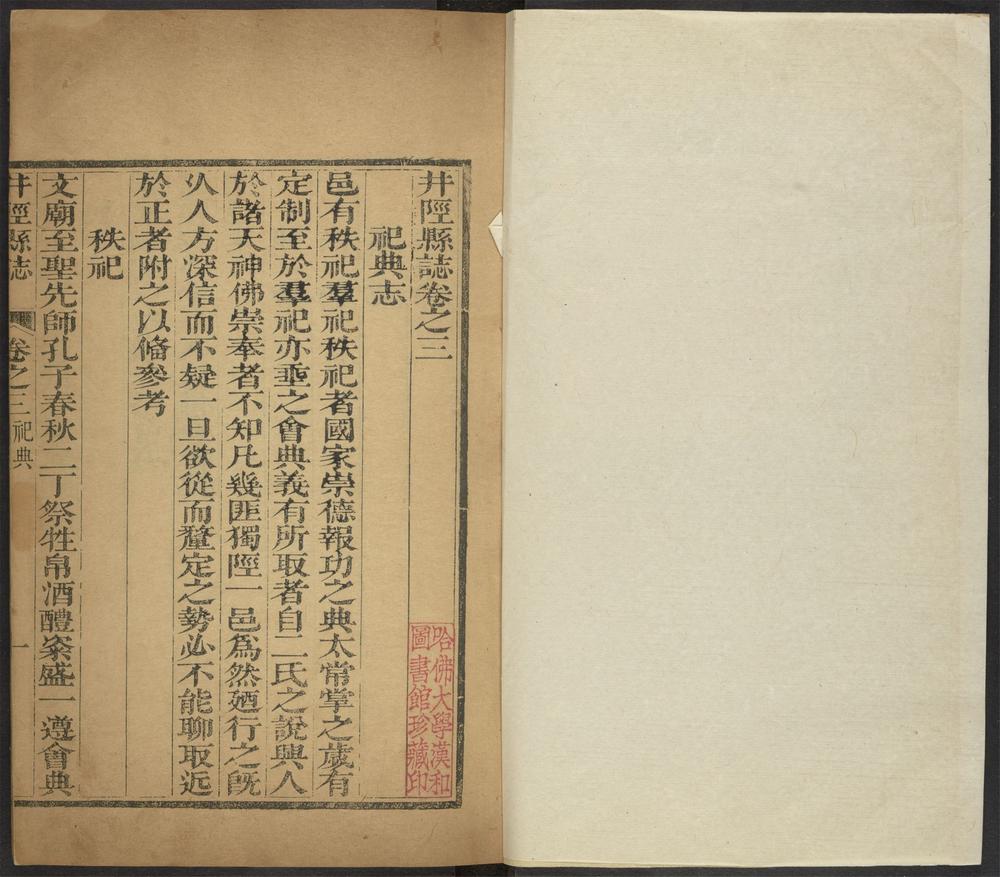 井陘縣誌卷之三
祀典志
邑有秩祀羣祀秩祀者國家崇德報功之典太常掌之歲有
定制至於羣祀亦垂之會典義有所取者自二氏之說興人
於諸天神佛崇奉者不知凡幾匪獨陘一邑爲然廼行之旣
乆人方深信而不疑一旦欲從而釐定之勢必不能聊取近
於正者附之以俻參考
秩祀
文廟至聖先師孔子春秋二丁祭牲帛酒醴粢盛一遵會典
井陘縣志 卷之三祀典 一
哈佛大學漢和
圖書館珍藏印